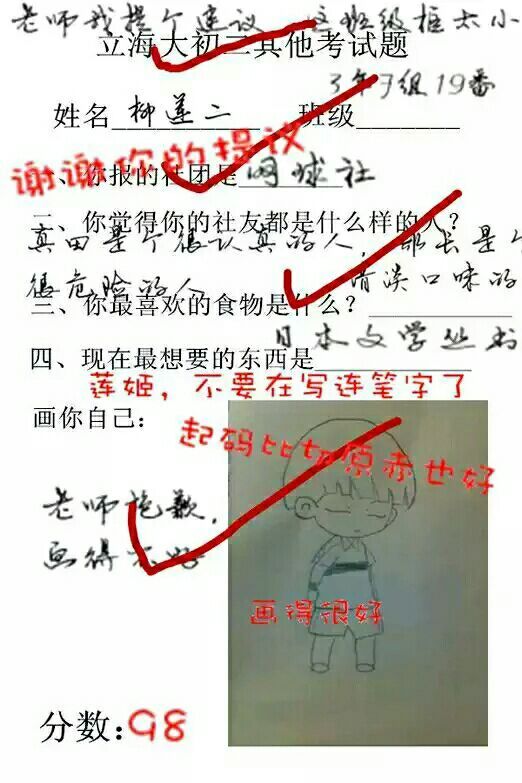 老师我提个建议 这班级框太小
立海大初三其他考试题
3年F组19番
姓名 柳莲二 班级
谢谢你的提议
一、你报的社团是 网球社
二、你觉得你的社友都是什么样的人？
真田是个很认真的人，部长是个
很危险的人
三、你最喜欢的食物是什么？ 清淡口味的
四、现在最想要的东西是 日本文学丛书
莲姬，不要在写连笔字了
画你自己：
起码比切原赤也好
老师抱歉，
画得不好
画得很好
分数：98